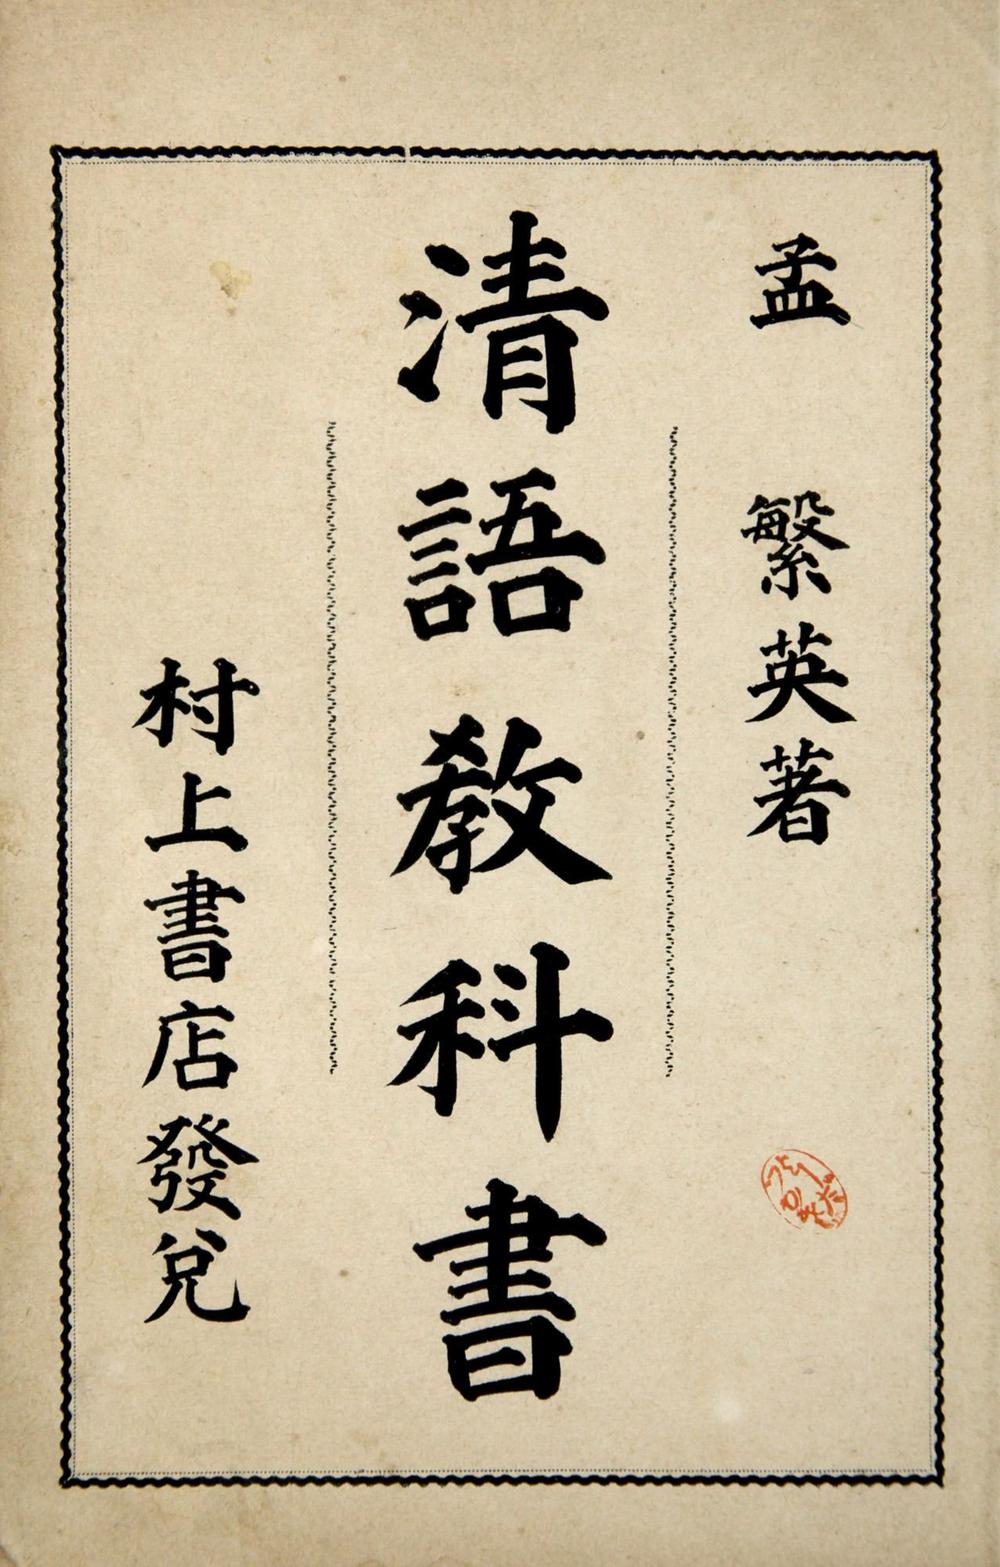 孟 繁英著
清語教科書
村上書店發兌